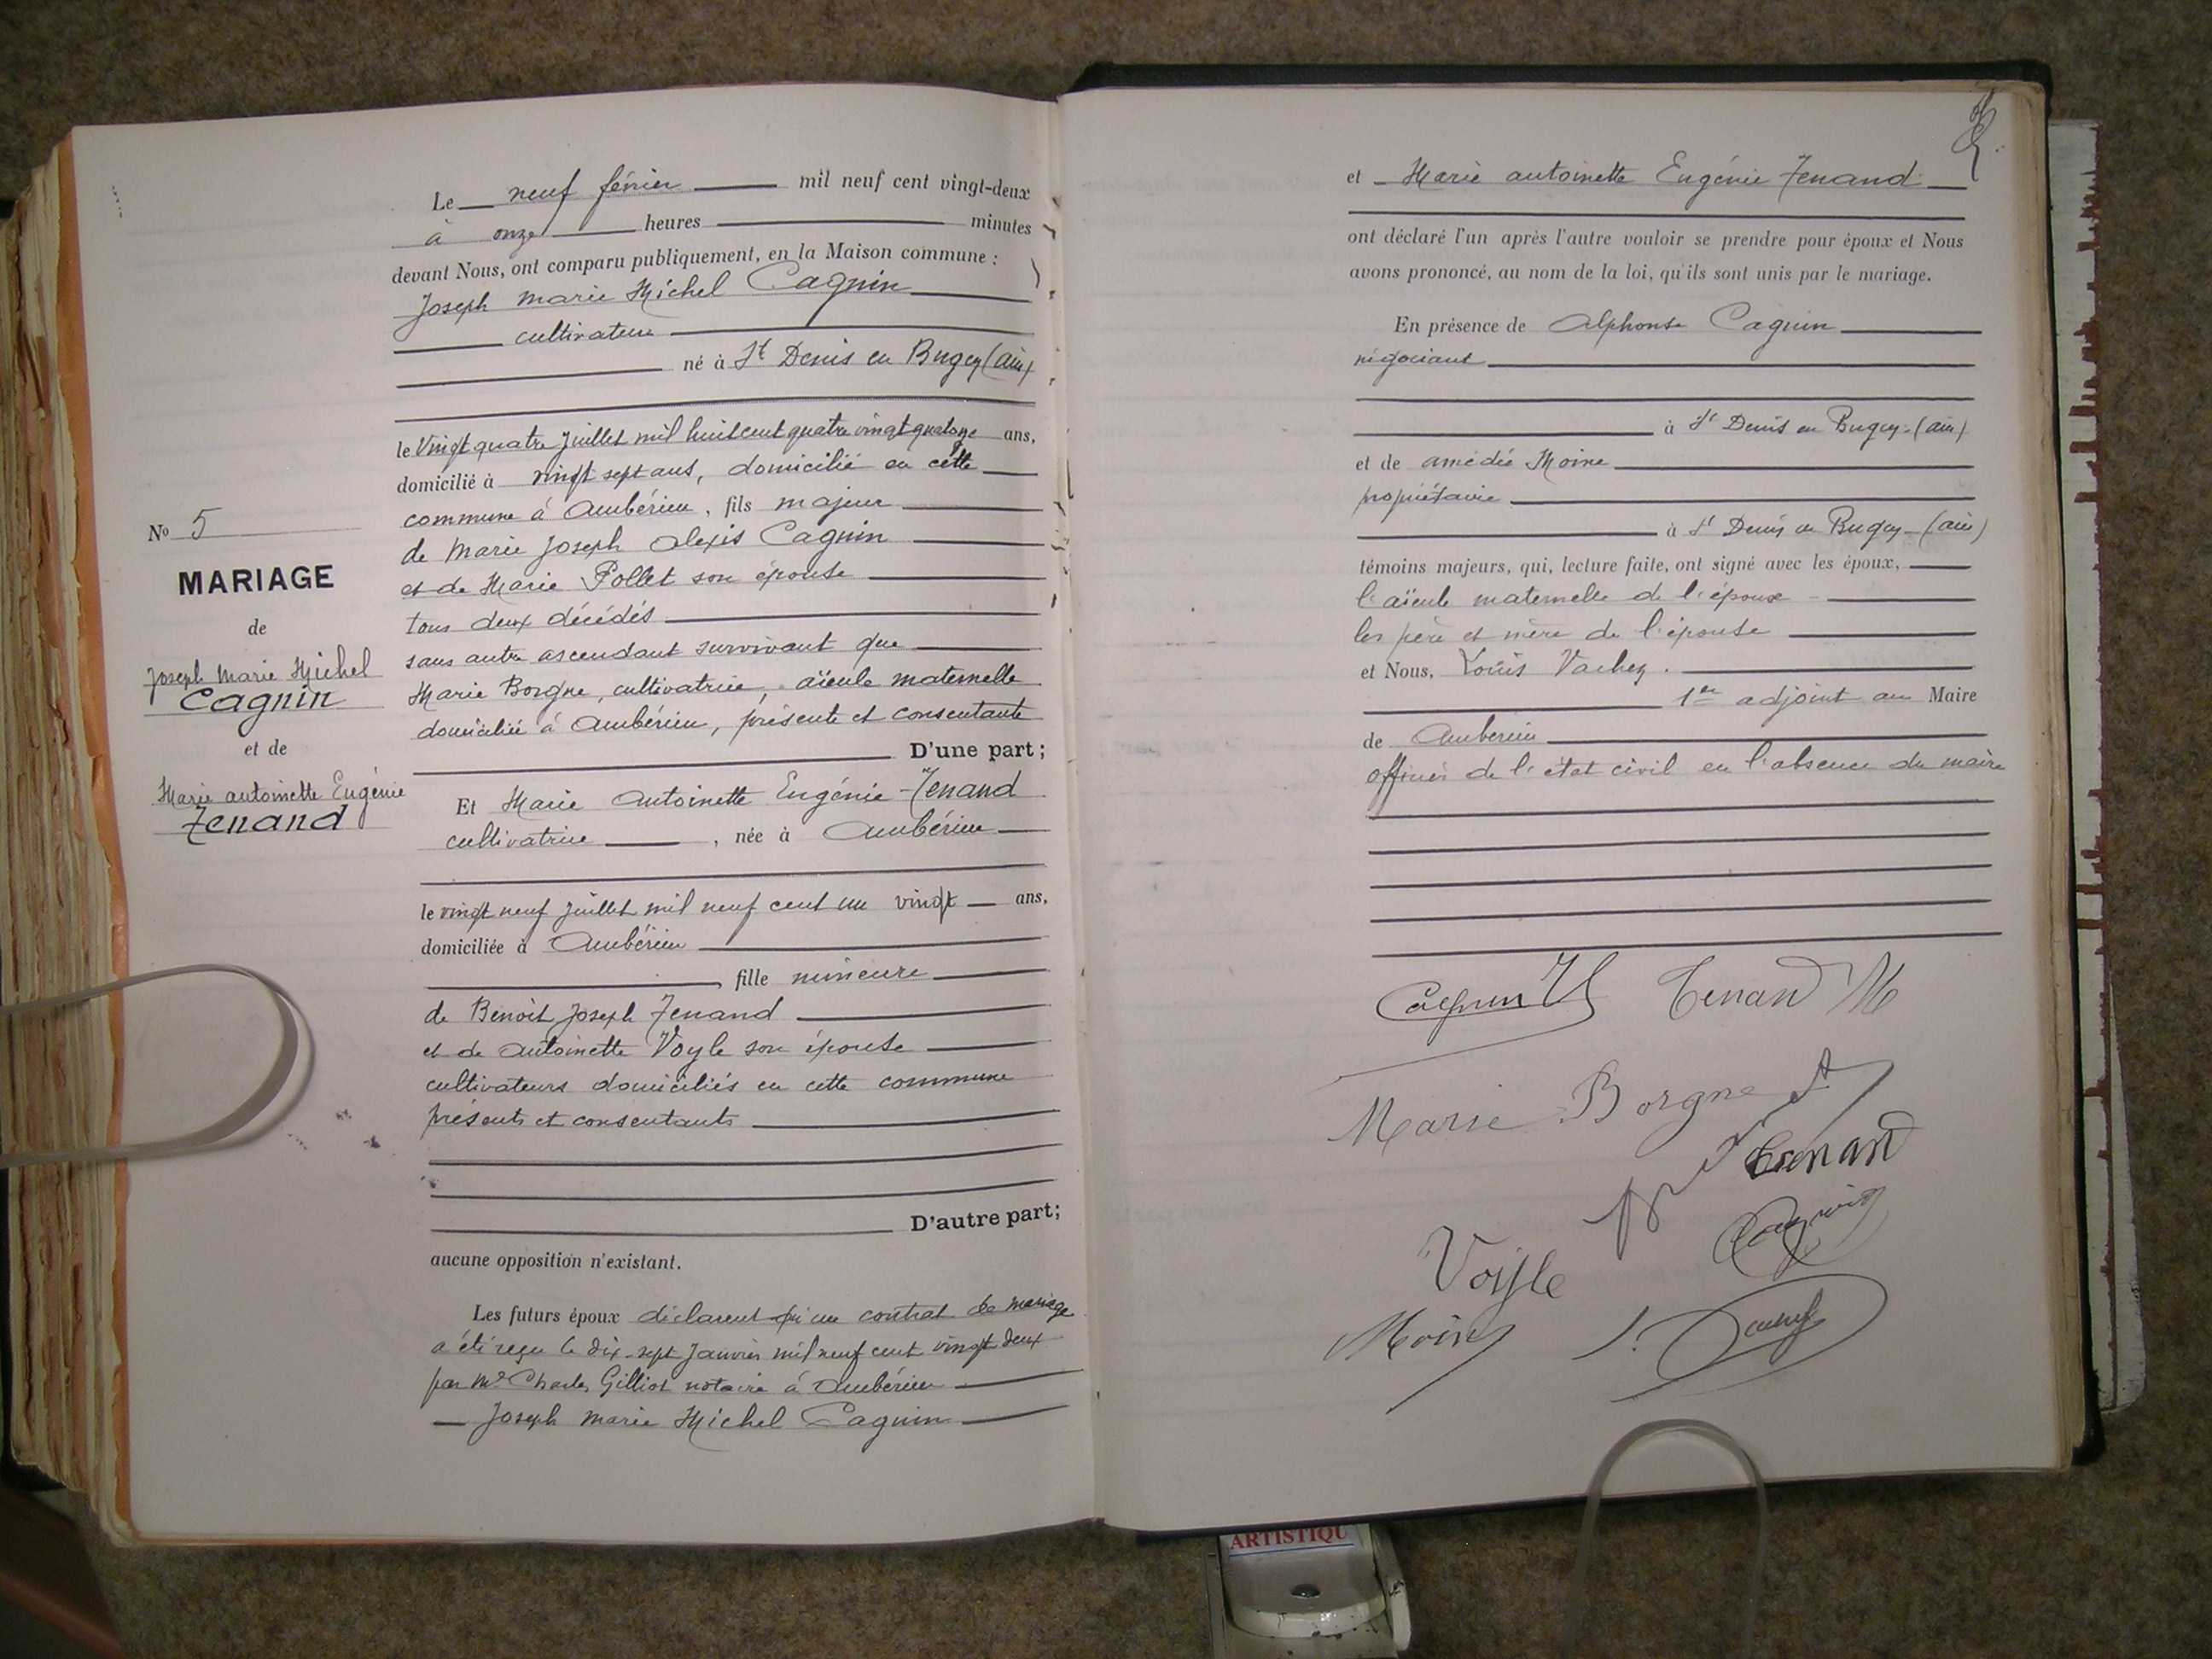 Le neuf février mil neuf cent vingt-deux
à onze heures minutes
devant Nous, ont comparu publiquement, en la Maison commune :
Joseph Marie Michel Cagnin
cultivateur
né à St Denis en Bugey (Ain)
le Vingt quatre juillet mil huit cent quatre vingt quatorze ans,
domicilié à vingt sept ans, domicilié en cette
commune à Ambérieu, fils majeur
de Marie Joseph Alexis Cagnin
et de Marie Pollet son épouse
tous deux décédés
sans autre ascendant survivant que
Marie Borgne, cultivatrice, aïeule maternelle
domiciliée à Ambérieu, présente et consentante
D'une part;
No 5
MARIAGE
de
Joseph Marie Michel
Cagnin
et de
Marie Antoinette Eugénie
Tenand
Et Marie Antoinette Eugénie Tenand
cultivatrice , née à Ambérieu
le vingt neuf juillet mil neuf cent un vingt ans,
domiciliée à Ambérieu
, fille mineure
de Benoît Joseph Tenand
et de Antoinette Voyle son épouse
cultivateurs domiciliés en cette commune
présents et consentants
D'autre part;
aucune opposition n'existant.
Les futurs époux déclarent qu'un contrat de mariage
a été reçu le dix-sept Janvier mil neuf cent vingt deux
par Me Charles Gilliot notaire à Ambérieu
Joseph Marie Michel Cagnin
et Marie Antoinette Eugénie Tenand
ont déclaré l'un après l'autre vouloir se prendre pour époux et Nous
avons prononcé, au nom de la loi, qu'ils sont unis par le mariage.
En présence de Alphonse Cagnin
négociant
à St Denis en Bugey (Ain)
et de Amédée Moine
propriétaire
à St Denis en Bugey (Ain)
témoins majeurs, qui, lecture faite, ont signé avec les époux,
l'aïeule maternelle de l'époux
les père et mère de l'épouse
et Nous, Louis Vachez.
1er adjoint au Maire
de Ambérieu
officier de l'état civil en l'absence du maire
Cagnin M Tenand M
Marie Borgne
Tenand
Cagnin
Voyle
Moine